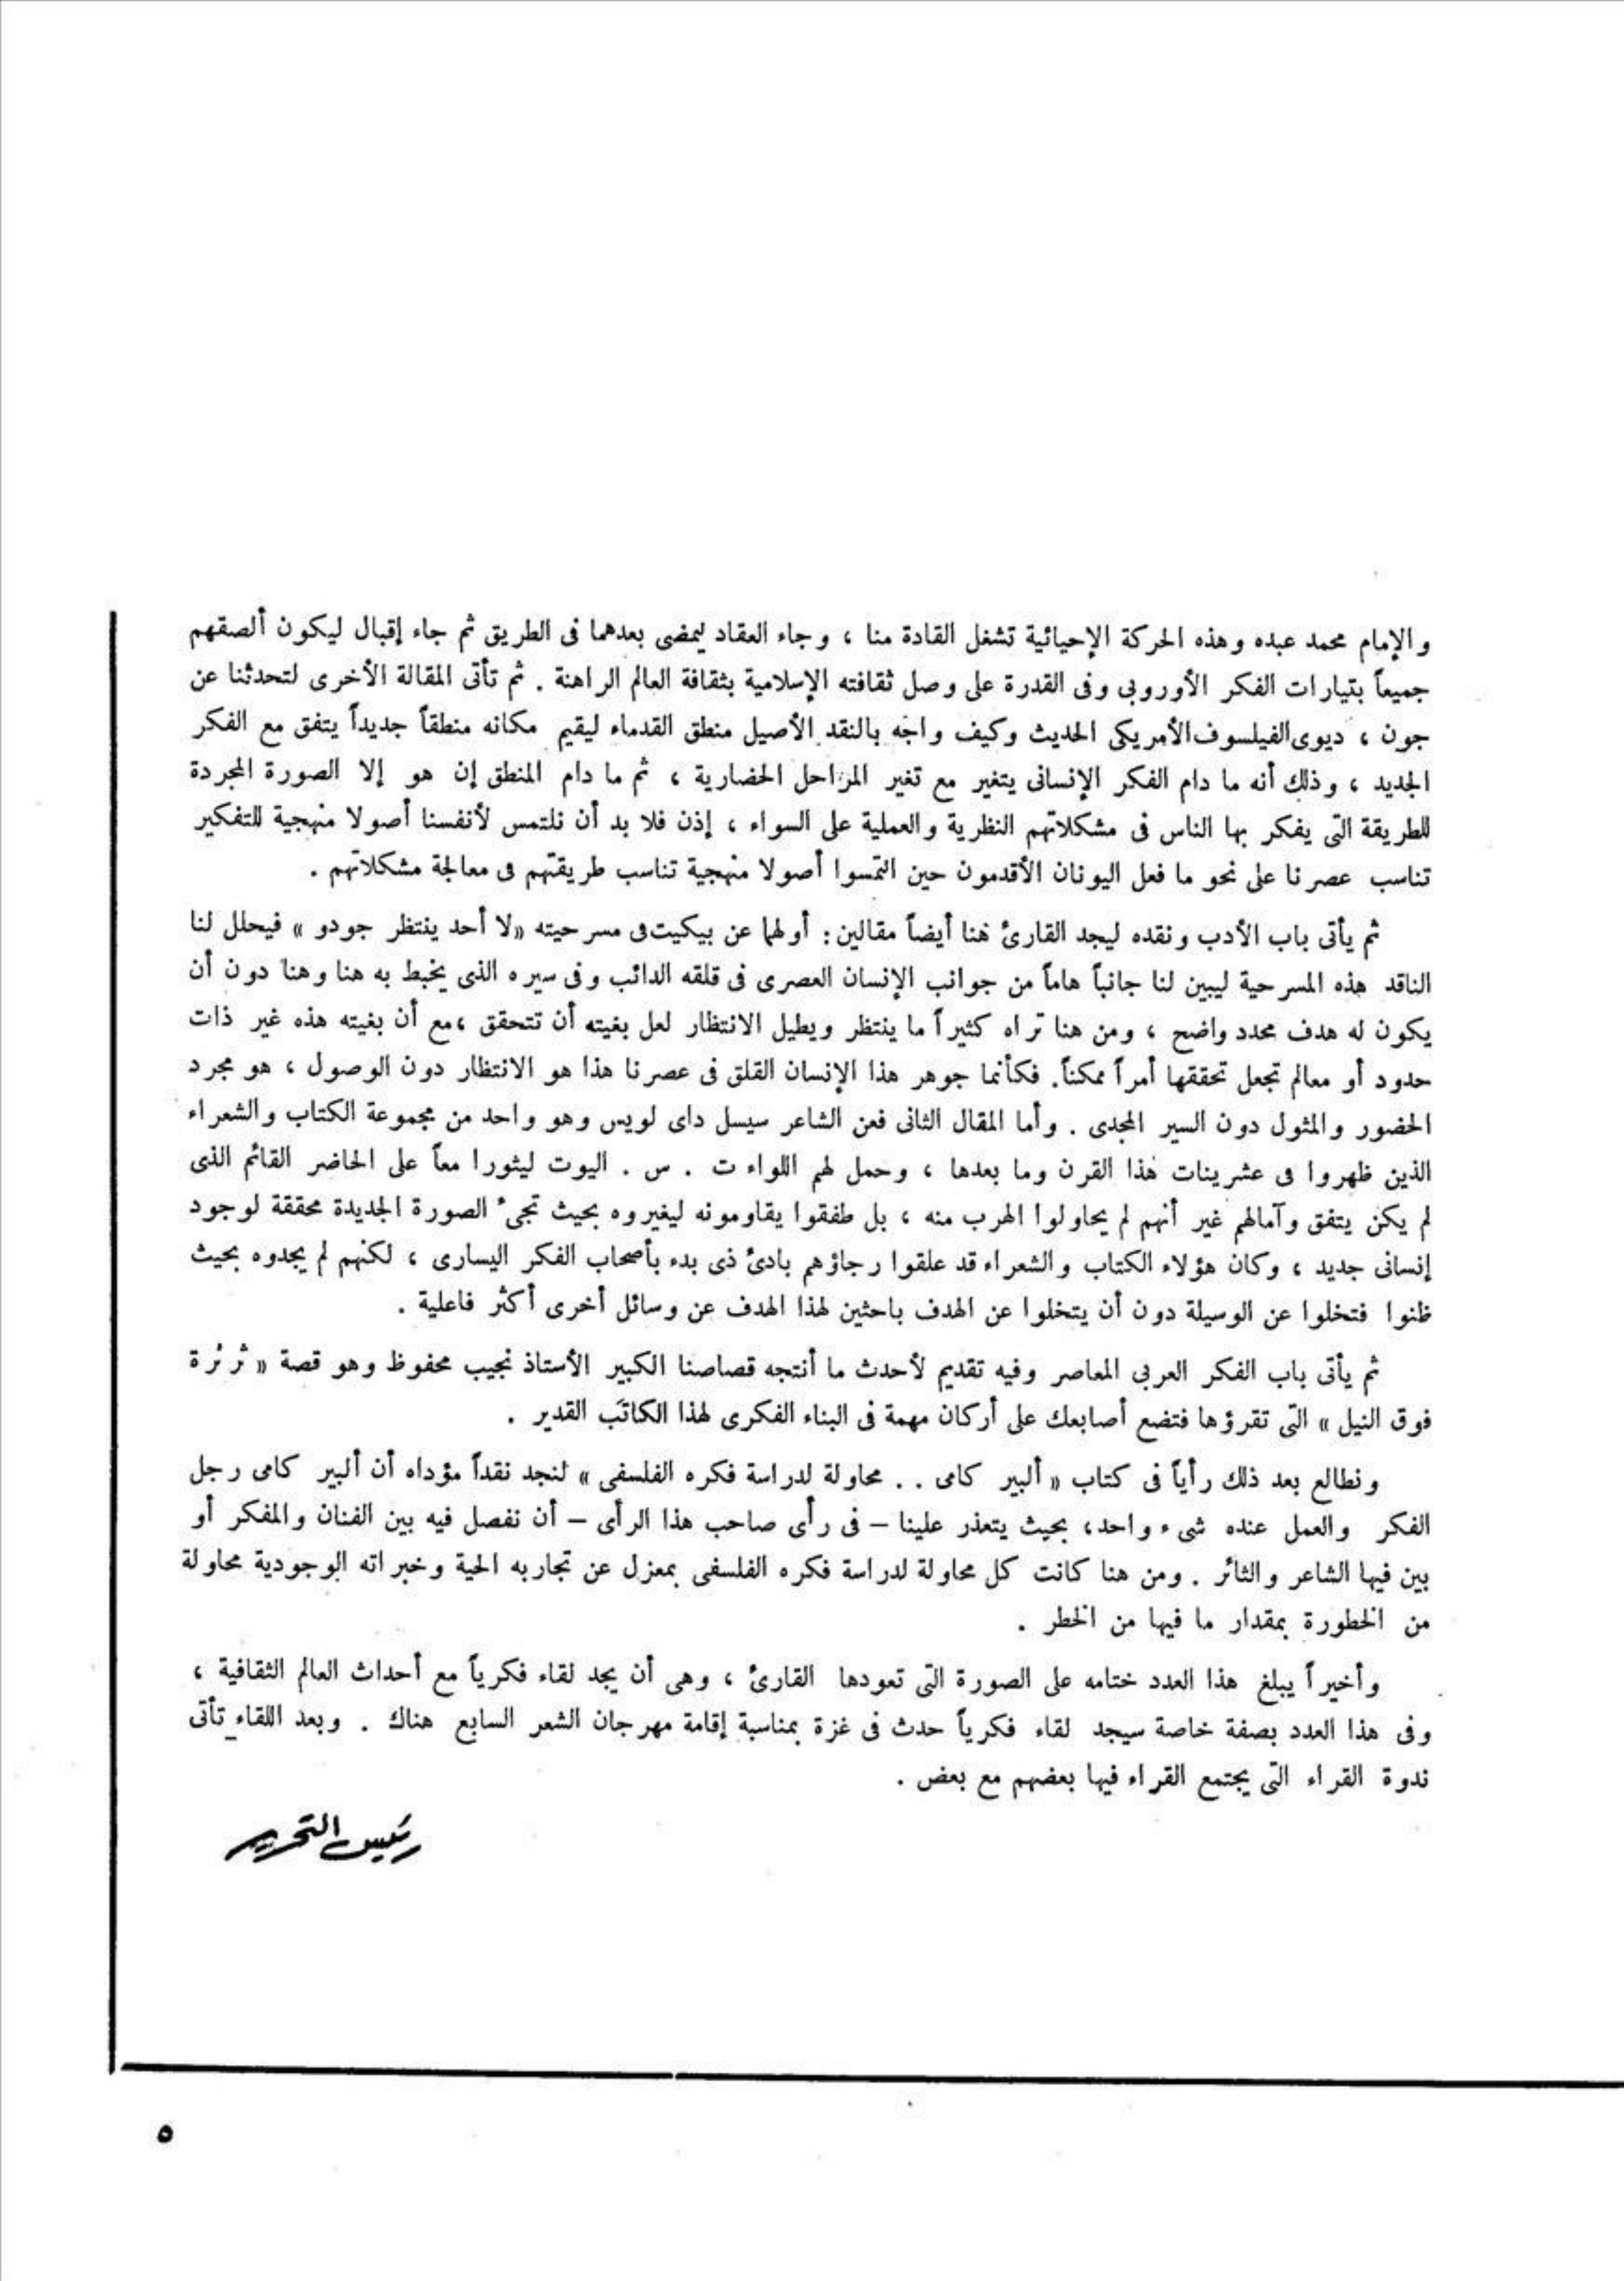 والإمام محمد عبده وهذه الحركة الإحيائية تشغل القادة منا ، وجاء العقاد ليمضى بعدهما فى الطريق ثم جاء إقبال ليكون ألصقهم
جميعاً بتيارات الفكر الأوروبى وفى القدرة على وصل ثقافته الإسلامية بثقافة العالم الراهنة . ثم تأتى المقالة الأخرى لتحدثنا عن
جون ، ديوى الفيلسوف الأمريكى الحديث وكيف واجه بالنقد الأصيل منطق القدماء ليقيم مكانه منطقاً جديداً يتفق مع الفكر
الجديد ، وذلك أنه ما دام الفكر الإنسانى يتغير مع تغير المراحل الحضارية ، ثم ما دام المنطق إن هو إلا الصورة المجردة
للطريقة التى يفكر بها الناس فى مشكلاتهم النظرية والعملية على السواء ، إذن فلا بد أن نلتمس لأنفسنا أصولا منهجية للتفكير
تناسب عصرنا على نحو ما فعل اليونان الأقدمون حين التمسوا أصولا منهجية تناسب طريقتهم فى معالجة مشكلاتهم .
ثم يأتى باب الأدب ونقده ليجد القارئ هنا أيضاً مقالين : أولهما عن بيكيت فى مسرحيته «لا أحد ينتظر جودو » فيحلل لنا
الناقد هذه المسرحية ليبين لنا جانباً هاماً من جوانب الإنسان العصرى فى قلقه الدائب وفى سيره الذى يخبط به هنا وهنا دون أن
يكون له هدف محدد واضح ، ومن هنا تراه كثيراً ما ينتظر ويطيل الانتظار لعل بغيته أن تتحقق ،مع أن بغيته هذه غير ذات
حدود أو معالم تجعل تحققها أمراً ممكناً. فكأنما جوهر هذا الإنسان القلق فى عصرنا هذا هو الانتظار دون الوصول ، هو مجرد
الحضور والمثول دون السير المجدى . وأما المقال الثانى فعن الشاعر سيسل داى لويس وهو واحد من مجموعة الكتاب والشعراء
الذين ظهروا فى عشرينات هذا القرن وما بعدها ، وحمل لهم اللواء ت . س . اليوت ليثورا معاً على الحاضر القائم الذى
لم يكن يتفق وآمالهم غير أنهم لم يحاولوا الهرب منه ، بل طفقوا يقاومونه ليغيروه بحيث تجىء الصورة الجديدة محققة لوجود
إنسانى جديد ، وكان هؤلاء الكتاب والشعراء قد علقوا رجاؤهم بادئ ذى بدء بأصحاب الفكر اليسارى ، لكنهم لم يجدوه بحيث
ظنوا فتخلوا عن الوسيلة دون أن يتخلوا عن الهدف باحثين لهذا الهدف عن وسائل أخرى أكثر فاعلية .
ثم يأتى باب الفكر العربى المعاصر وفيه تقديم لأحدث ما أنتجه قصاصنا الكبير الأستاذ نجيب محفوظ وهو قصة « ثرثرة
فوق النيل » التى تقرؤها فتضع أصابعك على أركان مهمة فى البناء الفكرى لهذا الكاتب القدير .
ونطالع بعد ذلك رأياً فى كتاب « ألبير كامى . . محاولة لدراسة فكره الفلسفى » لنجد نقداً مؤداه أن ألبير كامى رجل
الفكر والعمل عنده شىء واحد، بحيث يتعذر علينا – فى رأى صاحب هذا الرأى – أن نفصل فيه بين الفنان والمفكر أو
بين فيها الشاعر والثائر . ومن هنا كانت كل محاولة لدراسة فكره الفلسفى بمعزل عن تجاربه الحية وخبراته الوجودية محاولة
من الخطورة بمقدار ما فيها من الخطر .
وأخيراً يبلغ هذا العدد ختامه على الصورة التى تعودها القارئ ، وهى أن يجد لقاء فكرياً مع أحداث العالم الثقافية ،
وفى هذا العدد بصفة خاصة سيجد لقاء فكرياً حدث فى غزة بمناسبة إقامة مهرجان الشعر السابع هناك . وبعد اللقاء تأتى
ندوة القراء التى يجتمع القراء فيها بعضهم مع بعض .
رئيس التحرير
٥